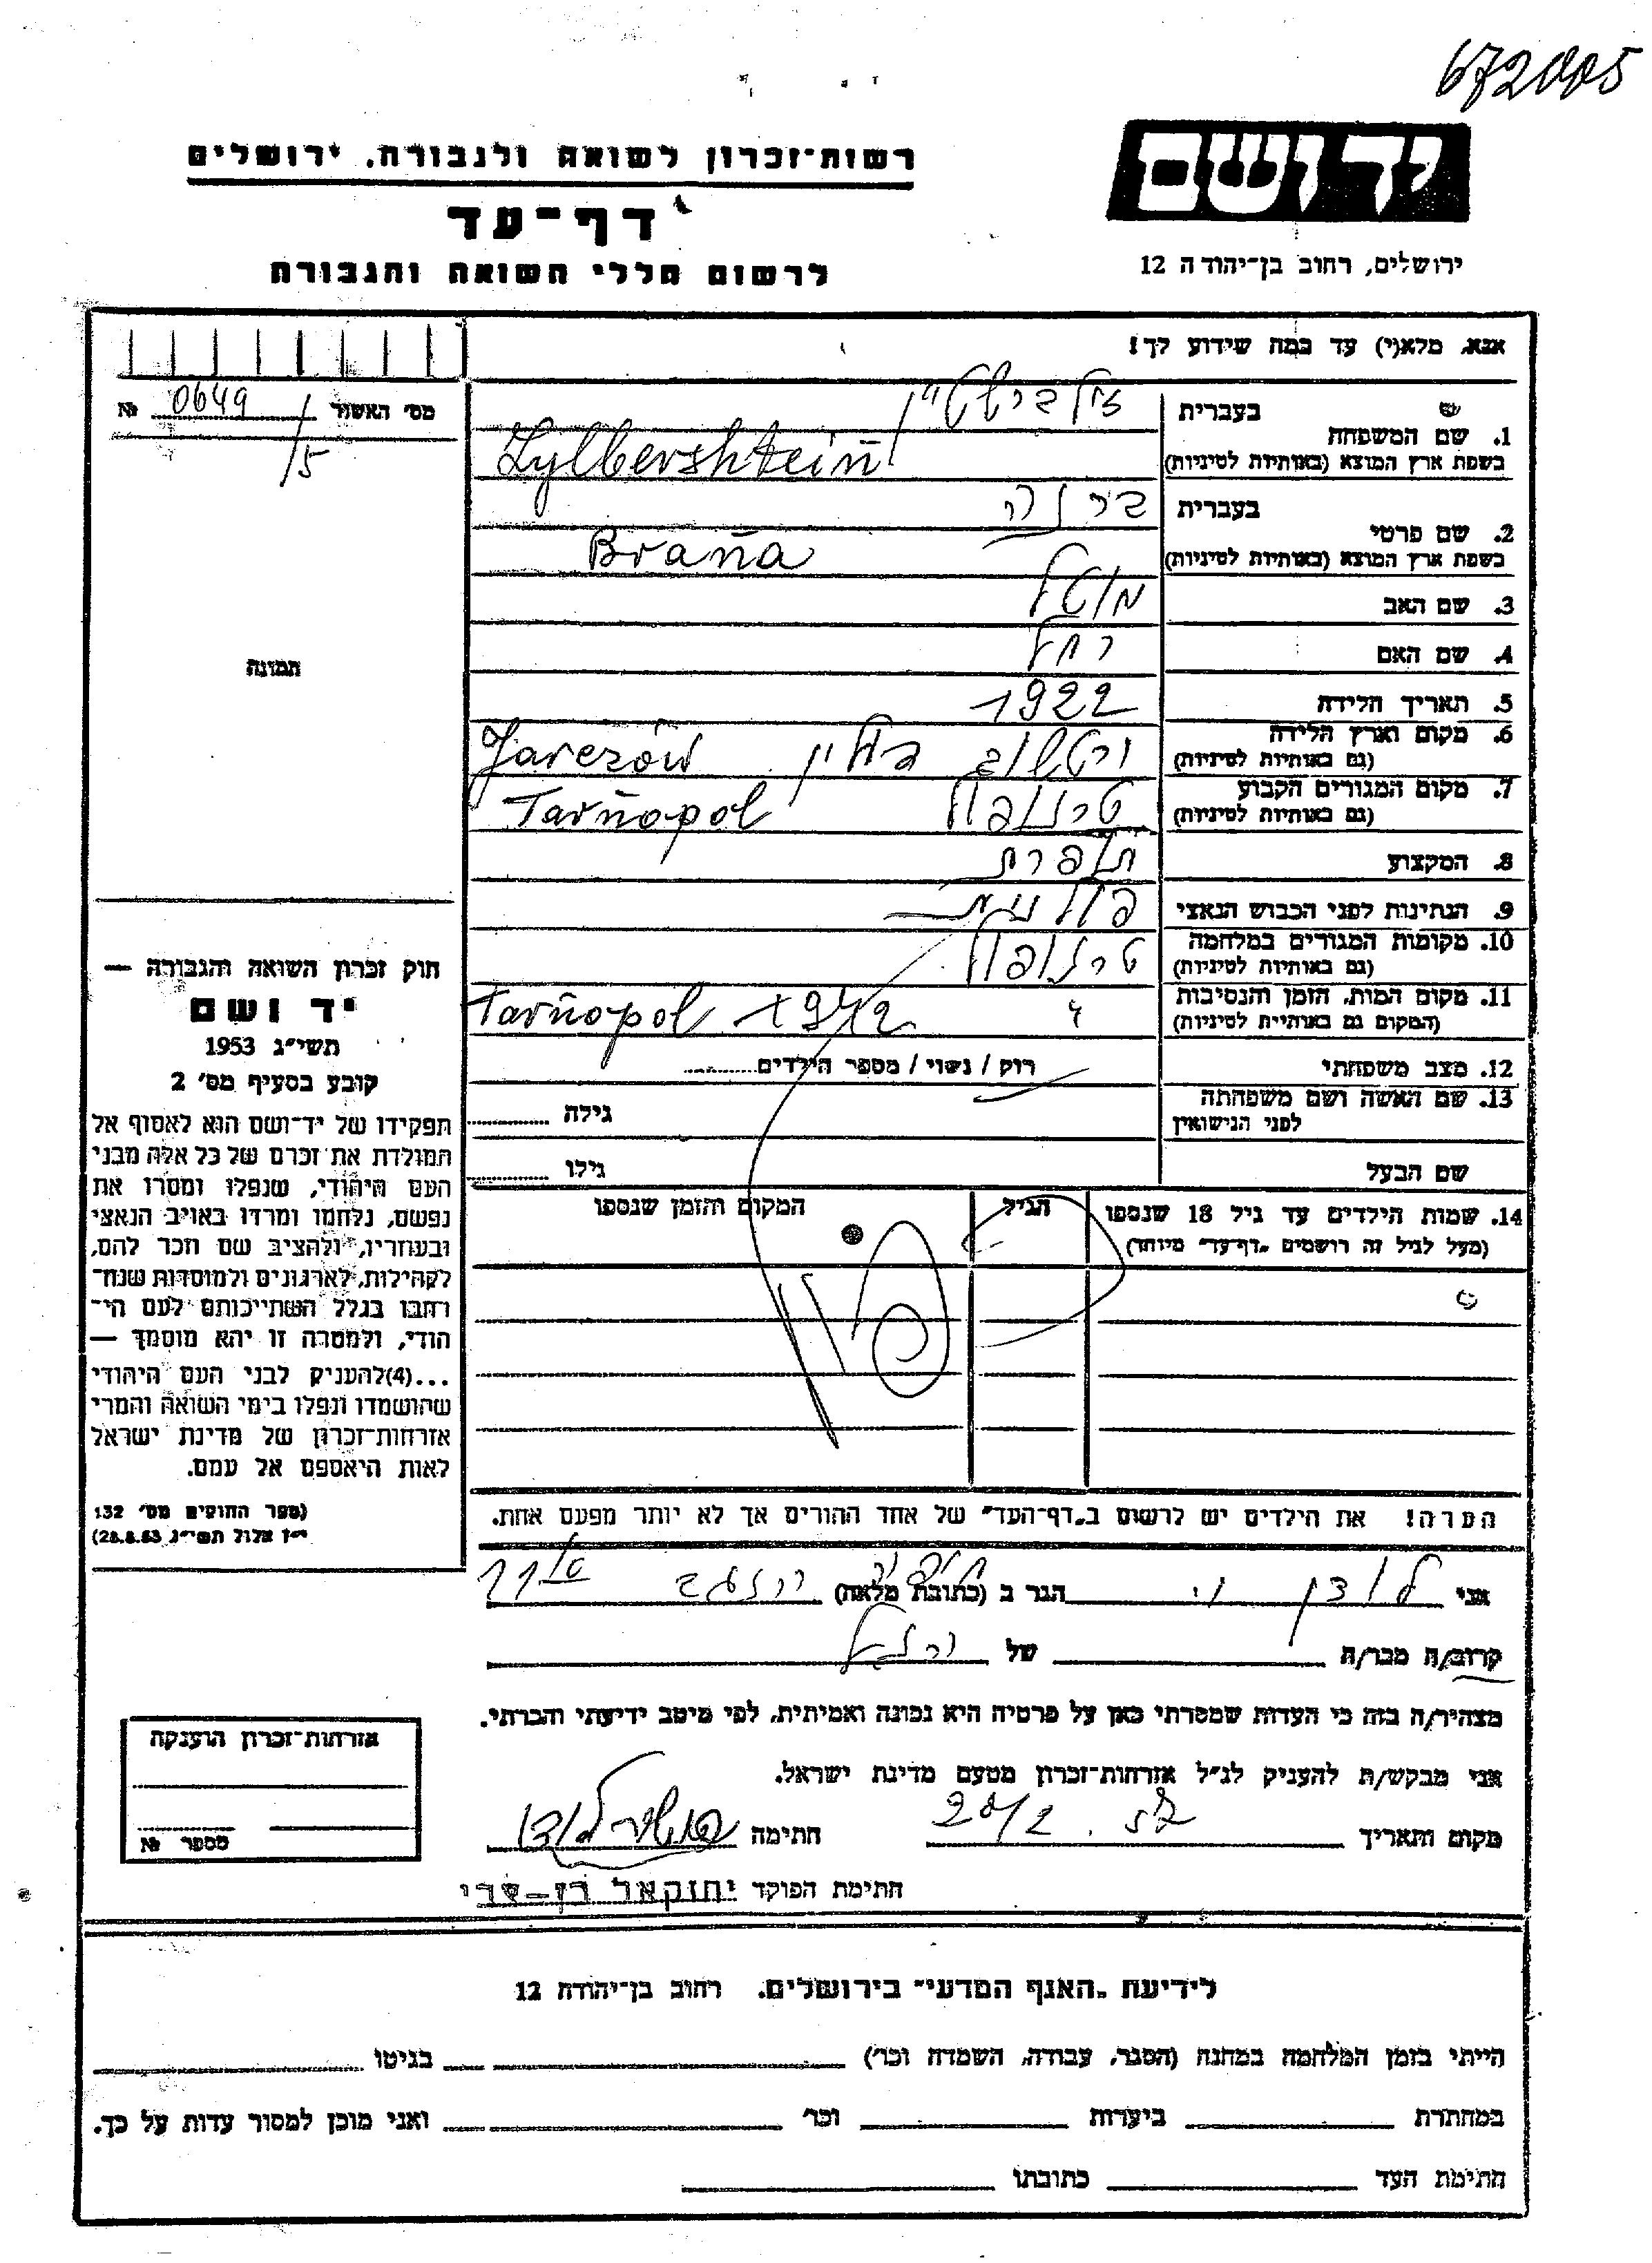 672005
רשות־זכרון לשואה ולגבורה, ירושלים
יד ושם
דף־עד
ירושלים, רחוב בן־יהודה 12
לרשום חללי השואה והגבורה
אנא, מלא(י) עד כמה שידוע לך!
מס' האשור 0649 №
/5
תמונה
1. שם המשפחה
בעברית זילברשטיין
בשפת ארץ המוצא (באותיות לטיניות) Zylbershtein
2. שם פרטי
בעברית ברנה
בשפת ארץ המוצא (באותיות לטיניות) Braña
3. שם האב מוטל
4. שם האם רחל
5. תאריך הלידה 1922
6. מקום וארץ הלידה פולין
(גם באותיות לטיניות) Jarezów
7. מקום המגורים הקבוע טרנופול
(גם באותיות לטיניות) Tarñopol
8. המקצוע תופרת
9. הנתינות לפני הכבוש הנאצי פולנית
10. מקומות המגורים במלחמה טרנופול
(גם באותיות לטיניות)
11. מקום המות, הזמן והנסיבות
(המקום גם באותיות לטיניות) Tarñopol 1942
12. מצב משפחתי רוק / נשוי / מספר הילדים
13. שם האשה ושם משפחתה
לפני הנישואין גילה
שם הבעל גילו
14. שמות הילדים עד גיל 18 שנספו
(מעל לגיל זה רושמים "דף־עד" מיוחד)
הגיל
המקום והזמן שנספו
הערה! את הילדים יש לרשום ב"דף־העד" של אחד ההורים אך לא יותר מפעם אחת.
חוק זכרון השואה והגבורה —
יד ושם
תשי"ג 1953
קובע בסעיף מס' 2
תפקידו של יד־ושם הוא לאסוף אל
המולדת את זכרם של כל אלה מבני
העם היהודי, שנפלו ומסרו את
נפשם, נלחמו ומרדו באויב הנאצי
ובעוזריו, ולהציב שם וזכר להם,
לקהילות, לארגונים ולמוסדות שנח־
רבו בגלל השתייכותם לעם הי־
הודי, ולמטרה זו יהא מוסמך —
...(4)להעניק לבני העם היהודי
שהושמדו ונפלו בימי השואה והמרי
אזרחות־זכרון של מדינת ישראל
לאות היאספם אל עמם.
(ספר החוקים מס' 132
י"ז אלול תשי"ג, 28.8.53)
אני הגר ב (כתובת מלאה) חיפה 11
קרוב/ה מכר/ה של
מצהיר/ה בזה כי העדות שמסרתי כאן על פרטיה היא נכונה ואמיתית, לפי מיטב ידיעתי והכרתי.
אני מבקש/ת להעניק לנ"ל אזרחות־זכרון מטעם מדינת ישראל.
מקום ותאריך חתימה
חתימת הפוקד יחזקאל בן-צרי
אזרחות־זכרון הוענקה
מספר №
לידיעת "האגף המדעי" בירושלים, רחוב בן־יהודה 12
הייתי בזמן המלחמה במחנה (הסגר, עבודה, השמדה וכר') בגיטו
במחתרת ביערות וכר' ואני מוכן למסור עדות על כך.
חתימת העד כתובתו